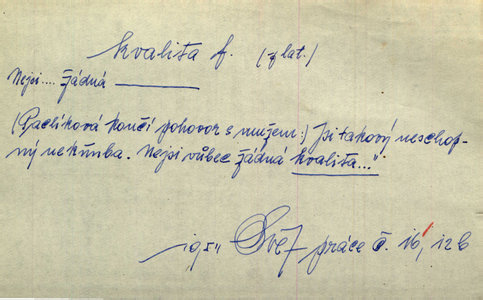 kvalita f. (z lat.)
Nejsi.... žádná ———
(Pavlíková končí pohovor s mužem:) Jsi takový neschop-
ný nekňuba. Nejsi vůbec žádná kvalita..."
1954 Svěž práce č. 16, 12 b